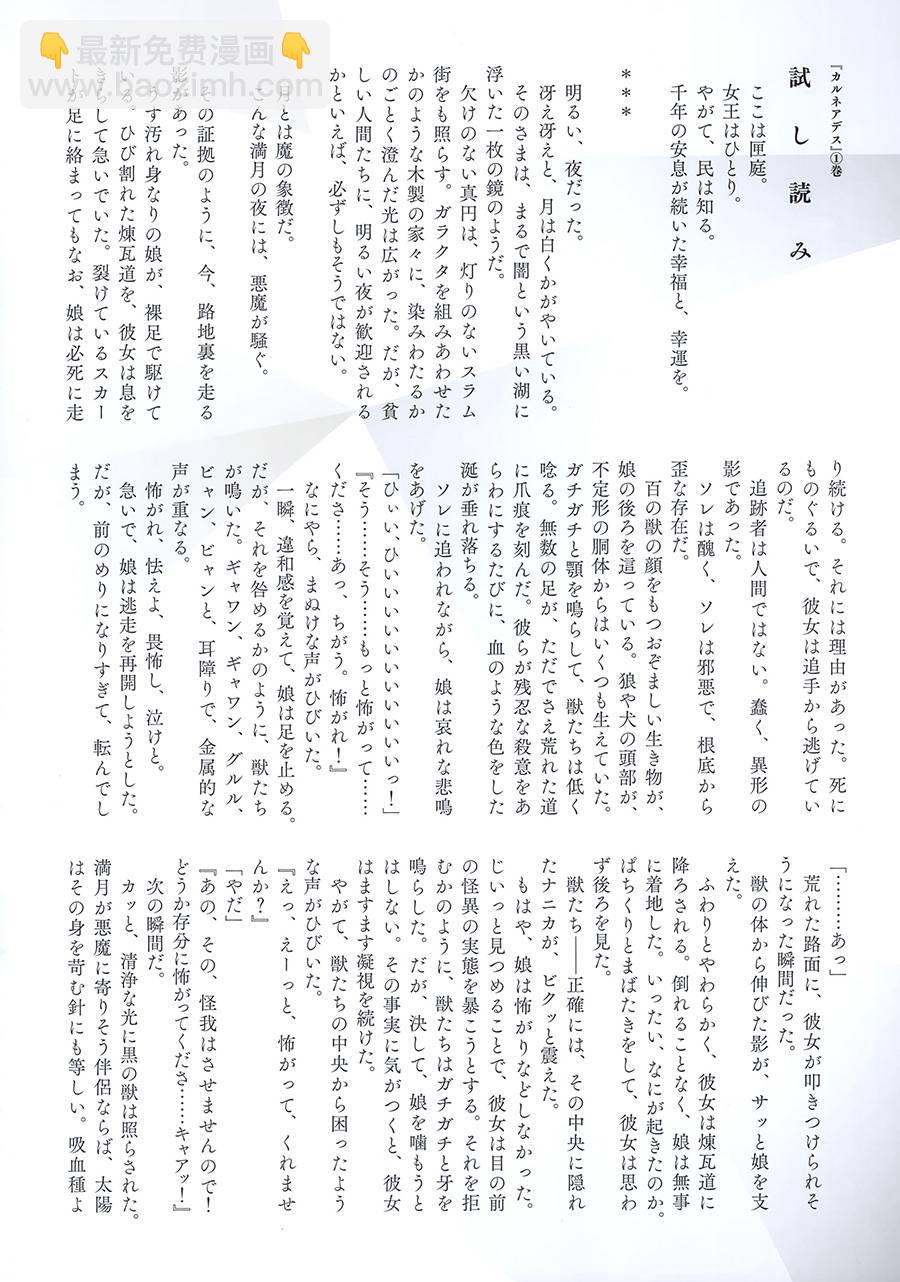 👇最新免费漫画👇
www.baozimh.com
『カルネアデス』①巻
試し読み
ここは匣庭。
女王はひとり。
やがて、民は知る。
千年の安息が続いた幸福と、幸運を。
＊＊＊
明るい、夜だった。
冴え冴えと、月は白くかがやいている。
そのさまは、まるで闇という黒い湖に
浮いた一枚の鏡のようだ。
欠けのない真円は、灯りのないスラム
街をも照らす。ガラクタを組みあわせた
かのような木製の家々に、染みわたるか
のごとく澄んだ光は広がった。だが、貧
しい人間たちに、明るい夜が歓迎される
かといえば、必ずしもそうではない。
月とは魔の象徴だ。
こんな満月の夜には、悪魔が騒ぐ。
その証拠のように、今、路地裏を走る
影があった。
うす汚れ身なりの娘が、裸足で駆けて
いる。ひび割れた煉瓦道を、彼女は息を
きらして急いでいた。裂けているスカー
トが足に絡まってもなお、娘は必死に走
り続ける。それには理由があった。死に
ものぐるいで、彼女は追手から逃げてい
るのだ。
追跡者は人間ではない。蠢く、異形の
影であった。
ソレは醜く、ソレは邪悪で、根底から
歪な存在だ。
百の獣の顔をもつおぞましい生き物が、
娘の後ろを這っている。狼や犬の頭部が、
不定形の胴体からはいくつも生えていた。
ガチガチと顎を鳴らして、獣たちは低く
唸る。無数の足が、ただでさえ荒れた道
に爪痕を刻んだ。彼らが残忍な殺意をあ
らわにするたびに、血のような色をした
涎が垂れ落ちる。
ソレに追われながら、娘は哀れな悲鳴
をあげた。
「ひぃい、ひいいいいいいいいいいいっ！」
『そう……そう……もっと怖がって……
くださ……あっ、ちがう。怖がれ！』
なにやら、まぬけな声がひびいた。
一瞬、違和感を覚えて、娘は足を止める。
だが、それを咎めるかのように、獣たち
が鳴いた。ギャワン、ギャワン、グルル、
ビャン、ビャンと、耳障りで、金属的な
声が重なる。
怖がれ、怯えよ、畏怖し、泣けと。
急いで、娘は逃走を再開しようとした。
だが、前のめりになりすぎて、転んでし
まう。
「………あっ」
荒れた路面に、彼女が叩きつけられそ
うになった瞬間だった。
獣の体から伸びた影が、サッと娘を支
えた。
ふわりとやわらかく、彼女は煉瓦道に
降ろされる。倒れることなく、娘は無事
に着地した。いったい、なにが起きたのか。
ぱちくりとまばたきをして、彼女は思わ
ず後ろを見た。
獣たち――正確には、その中央に隠れ
たナニカが、ビクッと震えた。
もはや、娘は怖がりなどしなかった。
じいっと見つめることで、彼女は目の前
の怪異の実態を暴こうとする。それを拒
むかのように、獣たちはガチガチと牙を
鳴らした。だが、決して、娘を噛もうと
はしない。その事実に気がつくと、彼女
はますます凝視を続けた。
やがて、獣たちの中央から困ったよう
な声がひびいた。
『えっ、えーっと、怖がって、くれませ
んか？』
「やだ」
『あの、その、怪我はさせませんので！
どうか存分に怖がってくださ……キャアッ！』
次の瞬間だ。
カッと、清浄な光に黒の獣は照らされた。
満月が悪魔に寄りそう伴侶ならば、太陽
はその身を苛む針にも等しい。吸血種よ